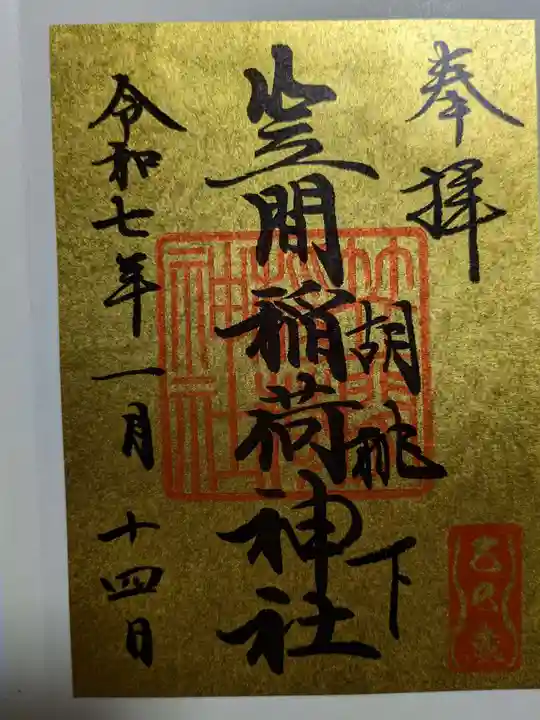 奉拝
胡桃下
笠間稲荷神社
令和七年一月十四日